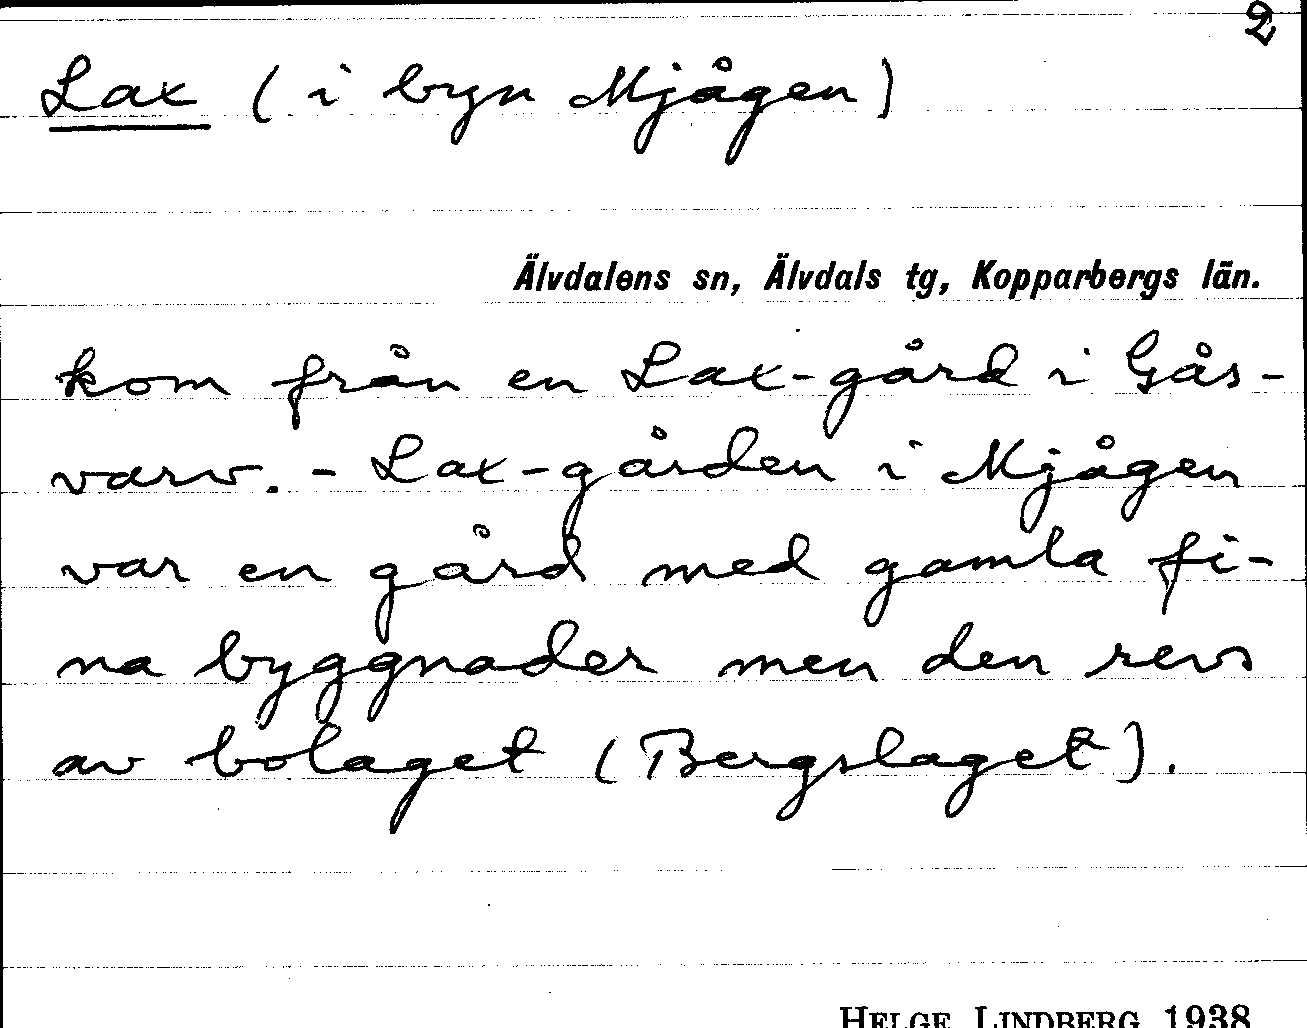 2
Lax (i byn Mjågen)
Älvdalens sn, Älvdals tg, Kopparbergs län.
kom från en Lax-gård i Gås-
varv. - Lax-gården i Mjågen
var en gård med gamla fi-
na byggnader men den revs
av bolaget (Bergslaget).
HELGE LINDBERG 1938